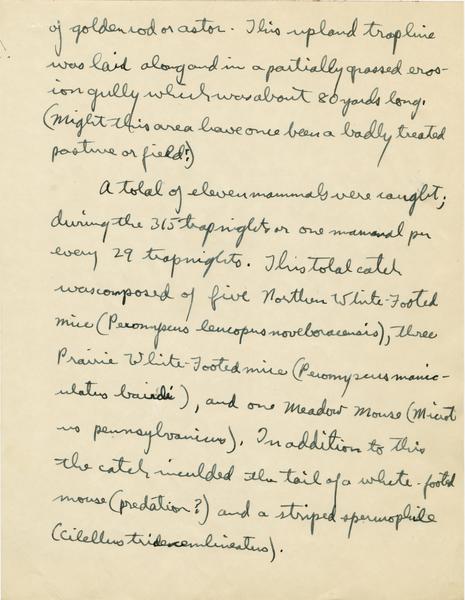 of goldenrod or astor. This upland trapline
was laid along and in a partially grassed eros-
ion gully which was about 80 yards long.
(Might this area have once been a badly treated
pasture or field?)
A total of eleven mammals were caught;
during the 315 trapnights or one mammal per
every 29 trapnights. This total catch
was composed of five Northern White-Footed
mice (Peromyscus leucopus noveboracensis), three
Prairie White-Footed mice (Peromyscus manic-
ulatus bairdii), and one Meadow Mouse (Microt
us pennsylvanicus). In addition to this
the catch inculded the tail of a white-footed
mouse (predation?) and a striped spermophile
(Citellus tridecemlineatus).